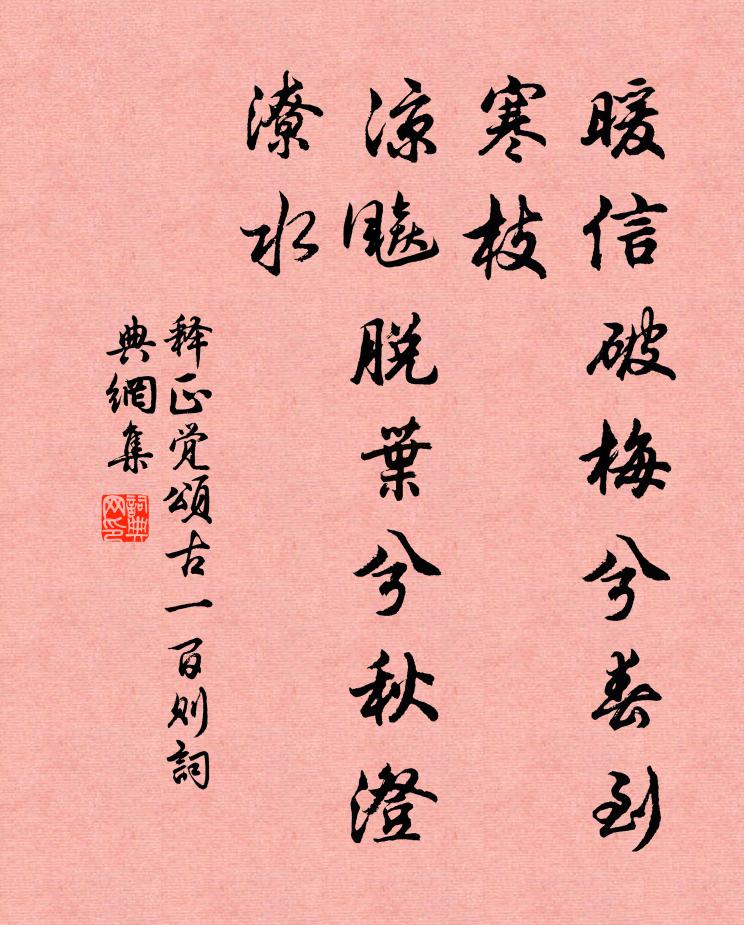 暖信破梅兮春到
寒枝
凉飚脱葉兮秋澄
潦水
释正觉頌古一百则詞
典網集
詞典
网印